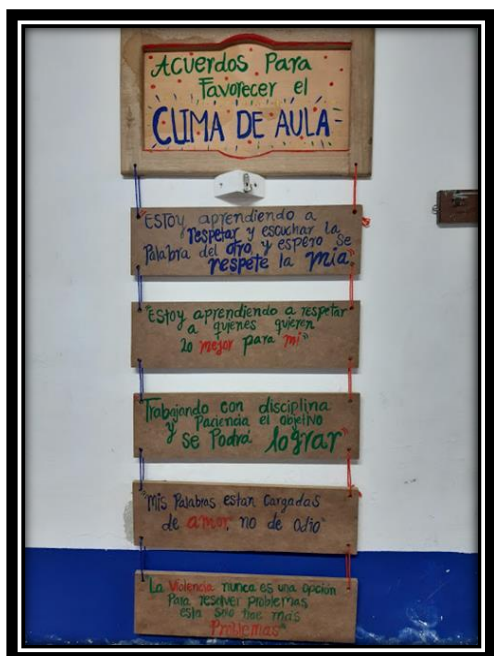 Acuerdos Para
Favorecer el
CLIMA DE AULA
"ESTOY aprendiendo a
respetar y escuchar la
Palabra del otro y espero se
respete la mía."
"Estoy aprendiendo a respetar
a quienes quieren
lo mejor para mí"
Trabajando con disciplina
y Paciencia el objetivo
se Podrá lograr"
"Mis Palabras están Cargadas
de amor, no de odio"
"La Violencia nunca es una opción
Para resolver problemas
esta solo trae más
Problemas"